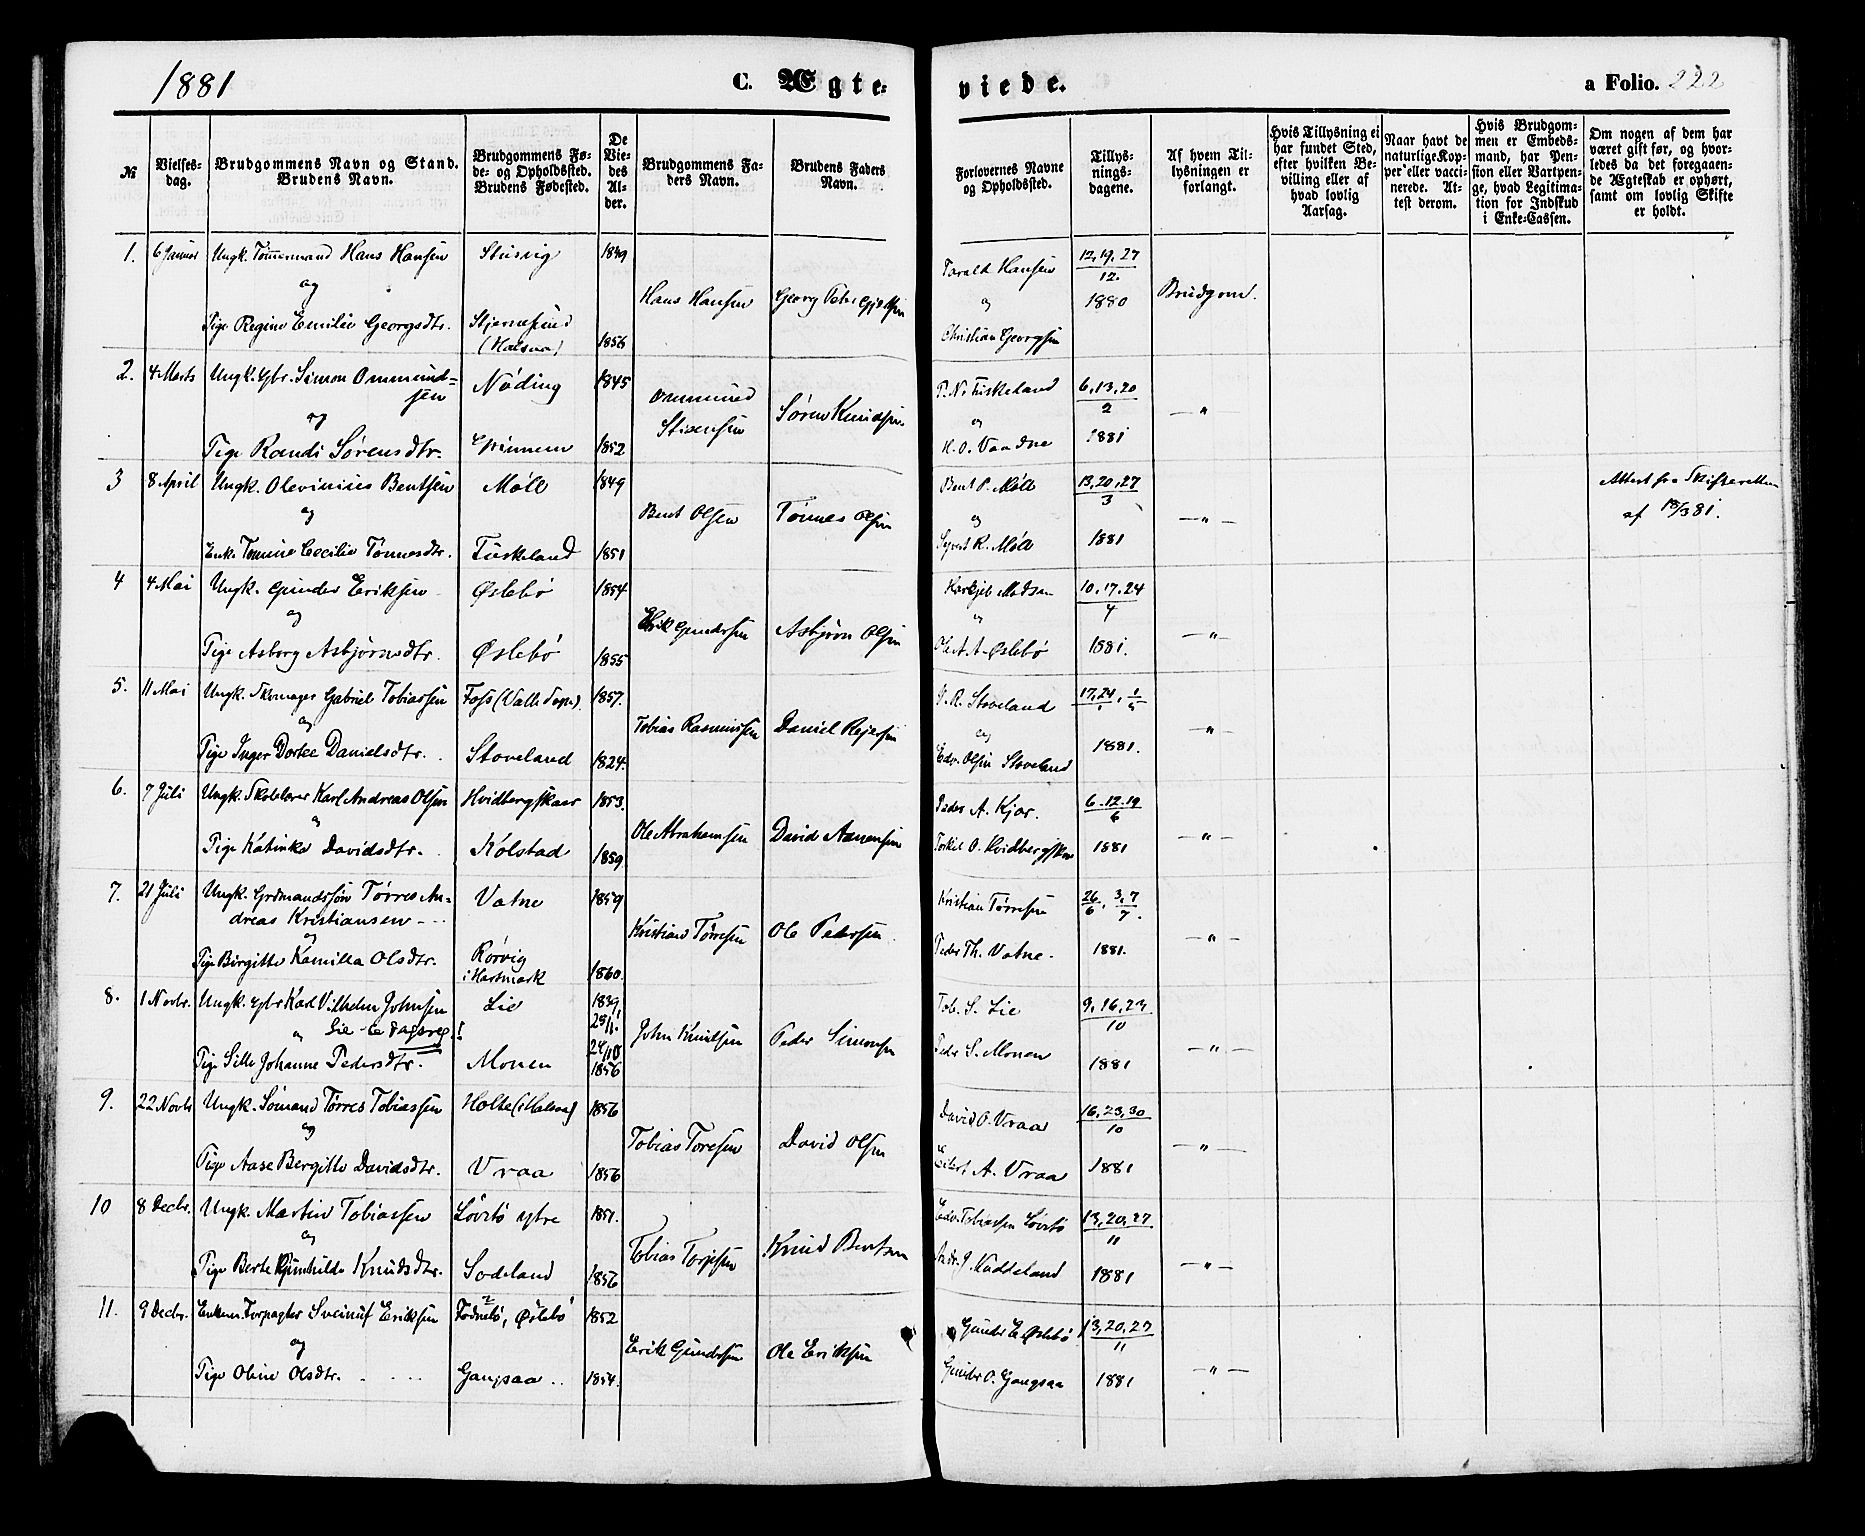 1881
C. Ægte-
viede.
a Folio. 222
№
Vielses-
dag.
Brudgommens Navn og Stand.
Brudens Navn.
Brudgommens Fø-
de- og Opholdssted.
Brudens Fødested.
De
Vie-
des
Al-
der.
Brudgommens Fa-
ders Navn.
Brudens Faders
Navn.
Forlovernes Navne
og Opholdssted.
Tillys-
nings-
dagene.
Af hvem Til-
lysningen er
forlangt.
Hvis Tillysning ei
har fundet Sted,
efter hvilken Be-
villing eller af
hvad lovlig
Aarsag.
Naar havt de
naturlige Kop-
per eller vacci-
nerede. At-
test derom.
Hvis Brudgom-
men er Embeds-
mand, har Pen-
sion eller Vartpen-
ge, hvad Legitima-
tion for Indskud
i Enke-Cassen.
Om nogen af dem har
været gift før, og hvor-
ledes da det foregaaen-
de Ægteskab er ophørt,
samt om lovlig Skifte
er holdt.
1. 6 Januar Ungk. Tømmermand Hans Hansen 1849
og
Tige Regine Emilie Georgsdtr. Stjernesund
1856
Hans Hansen Georg Peter
Tarald Hansen 12, 19, 27
12
og 1880 Brudgom.
Christian Georgsen
2. 4 Marts Ungk. Gbr. Simon Ommund- Nøding 1845
sen
og
Tige Randi Sørensdtr. 1852
Ommund
Søren Knudsen
6, 13, 20
2
og
1881
— " —
3 8 April Ungk. Olevinius Bentsen Møll 1849
og
Enke Tomine Cecilie Tønnesdtr. Tuskeland 1851
Bent Olsen Tønnes Olsen
Bent P. Møll 13, 20, 27
3
og
Syvert R. Møll 1881
— " —
Attest fra Skifteretten
af
4 4 Mai Ungk. Gunder Eriksen Øslebø 1854
og
Tige Asborg Asbjørnsdtr. Øslebø 1855
Erik Gundersen Asbjørn Olsen
10, 17, 24
4
Ole A. A. Øslebø 1881.
— " —
5. 11 Mai Ungk. Skomager Gabriel Tobiassen Foss 1857.
og
Tige Inger Dortea Danielsdtr. Stoveland 1824.
Tobias Rasmussen Daniel Rejersen
Stoveland 17, 24,
og
Edv. Olsen Stoveland 1881.
— " —
6. 7 Juli Ungk. Skolelærer Karl Andreas Olsen Hvidbergskaar 1853.
og
Tige Katinka Davidsdtr. Kolstad 1859.
Ole Abrahamsen David Aanensen
Peder A. Kjær. 6. 12. 19
6
Torkel O. Hvidbergskaar 1881
— " —
7. 21 Juli Ungk. Grdmandssøn Tørres An- Vatne 1859
dreas Kristiansen
og
Tige Birgitte Kamilla Olsdtr. Rørvig
i Hartmark 1860.
Kristian Tørresen Ole Pedersen
Kristian Tørresen 26/6, 3, 7
7.
Peder Th. Vatne. 1881.
— " —
8. 1 Novbr. Ungk. Gbr. Karl Vilhelm Johnsen Lie 1839
Lie
Tige Sille Johanne Pedersdtr. Monen 24/10
1856
John Knudsen Peder Simonsen
Tob. S. Lie 9, 16, 23
10
Peder S. Monen 1881
— " —
9. 22 Novbr Ungk. Sømand Tørres Tobiassen Holte 1856
og
Tige Aase Bergitte Davidsdtr. Vraa 1856
Tobias Toresen David Olsen
David O. Vraa 16, 23, 30
10
A. Vraa 1881
— " —
10 8 Decbr. Ungk. Martin Tobiassen Løvstø ytre 1851.
og
Tige Berte Gunhilde Knudsdtr. Sodeland 1856
Tobias Torjesen Knud Bentsen
Edv. Tobiassen Løvstø 13, 20, 27
11
1881
— " —
11. 9 Decbr. Enkem. Forpagter Sveinuf Eriksen Øslebø 1852
og
Tige Oline Olsdtr. Gangsaa 1854.
Erik Gundersen Ole Eriksen
Gunder E. Øslebø 13, 20, 27
11
Gunder O. Gangsaa 1881
— " —